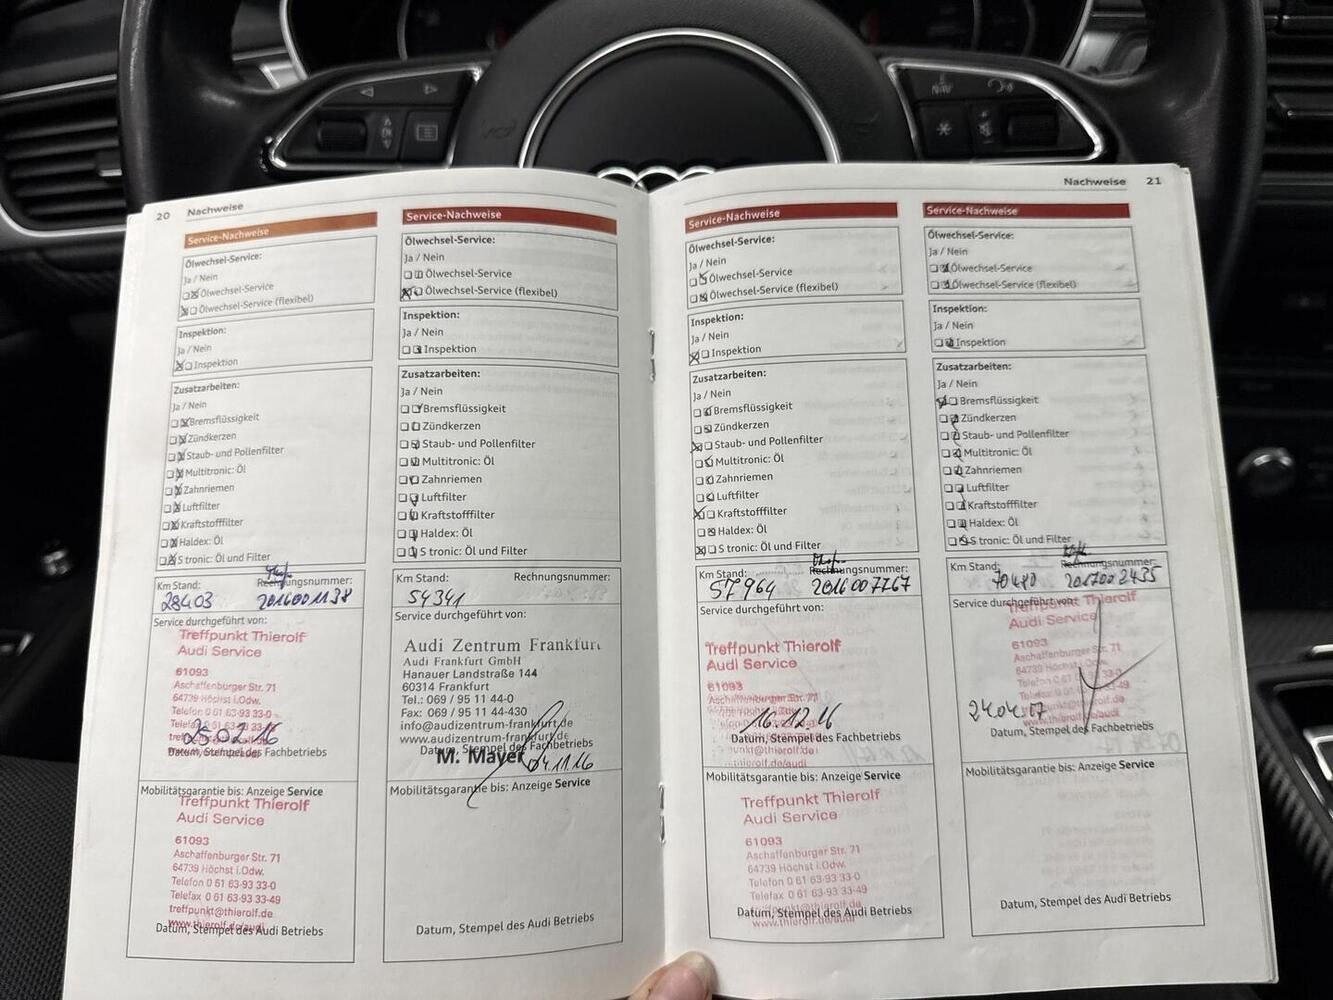 NAV
20 Nachweise
Service-Nachweise
Ölwechsel-Service:
Ja / Nein
Ölwechsel-Service
Ölwechsel-Service (flexibel)
Inspektion:
Ja / Nein
Inspektion
Zusatzarbeiten:
Ja / Nein
Bremsflüssigkeit
Zündkerzen
Staub- und Pollenfilter
Multitronic: Öl
Zahnriemen
Luftfilter
Kraftstofffilter
Haldex: Öl
S tronic: Öl und Filter
Km Stand: Rechnungsnummer:
28403 2016001138
Service durchgeführt von:
Treffpunkt Thierolf
Audi Service
61093
Aschaffenburger Str. 71
64739 Höchst i.Odw.
Telefon 0 61 63-93 33-0
25.02.16
Datum, Stempel des Fachbetriebs
Mobilitätsgarantie bis: Anzeige Service
Treffpunkt Thierolf
Audi Service
61093
Aschaffenburger Str. 71
64739 Höchst i.Odw.
Telefon 0 61 63-93 33-0
Telefax 0 61 63-93 33-49
treffpunkt@thierolf.de
www.thierolf.de/audi
Datum, Stempel des Audi Betriebs
Service-Nachweise
Ölwechsel-Service:
Ja / Nein
Ölwechsel-Service
Ölwechsel-Service (flexibel)
Inspektion:
Ja / Nein
Inspektion
Zusatzarbeiten:
Ja / Nein
Bremsflüssigkeit
Zündkerzen
Staub- und Pollenfilter
Multitronic: Öl
Zahnriemen
Luftfilter
Kraftstofffilter
Haldex: Öl
S tronic: Öl und Filter
Km Stand: Rechnungsnummer:
54341
Service durchgeführt von:
Audi Zentrum Frankfurt
Audi Frankfurt GmbH
Hanauer Landstraße 144
60314 Frankfurt
Tel.: 069 / 95 11 44-0
Fax: 069 / 95 11 44-430
info@audizentrum-frankfurt.de
www.audizentrum-frankfurt.de
Datum, Stempel des Fachbetriebs
M. Mayer 04.11.16
Mobilitätsgarantie bis: Anzeige Service
Datum, Stempel des Audi Betriebs
Nachweise 21
Service-Nachweise
Ölwechsel-Service:
Ja / Nein
Ölwechsel-Service
Ölwechsel-Service (flexibel)
Inspektion:
Ja / Nein
Inspektion
Zusatzarbeiten:
Ja / Nein
Bremsflüssigkeit
Zündkerzen
Staub- und Pollenfilter
Multitronic: Öl
Zahnriemen
Luftfilter
Kraftstofffilter
Haldex: Öl
S tronic: Öl und Filter
Km Stand: Rechnungsnummer:
57964 2016007767
Service durchgeführt von:
Treffpunkt Thierolf
Audi Service
61093
Aschaffenburger Str. 71
16.12.16
Datum, Stempel des Fachbetriebs
Mobilitätsgarantie bis: Anzeige Service
Treffpunkt Thierolf
Audi Service
61093
Aschaffenburger Str. 71
64739 Höchst i.Odw.
Telefon 0 61 63-93 33-0
Telefax 0 61 63-93 33-49
treffpunkt@thierolf.de
Datum, Stempel des Audi Betriebs
www.thierolf.de/audi
Service-Nachweise
Ölwechsel-Service:
Ja / Nein
Ölwechsel-Service
Ölwechsel-Service (flexibel)
Inspektion:
Ja / Nein
Inspektion
Zusatzarbeiten:
Ja / Nein
Bremsflüssigkeit
Zündkerzen
Staub- und Pollenfilter
Multitronic: Öl
Zahnriemen
Luftfilter
Kraftstofffilter
Haldex: Öl
S tronic: Öl und Filter
Km Stand: Rechnungsnummer:
70480 2017002435
Service durchgeführt von:
Treffpunkt Thierolf
Audi Service
61093
Aschaffenburger Str. 71
64739 Höchst i.Odw.
24.04.17
Datum, Stempel des Fachbetriebs
Mobilitätsgarantie bis: Anzeige Service
Datum, Stempel des Audi Betriebs